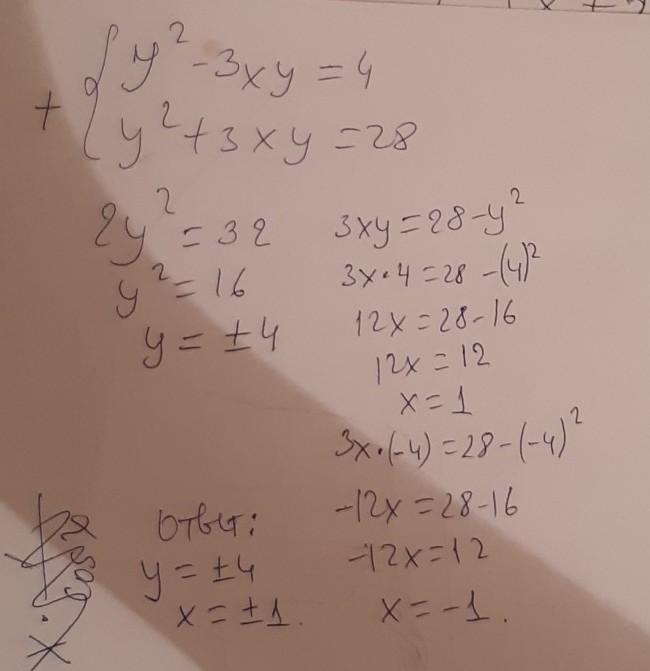 y² - 3xy = 4
+
y² + 3xy = 28
2y² = 32
y² = 16
y = ±4
3xy = 28 - y²
3x · 4 = 28 - (4)²
12x = 28 - 16
12x = 12
x = 1
3x · (-4) = 28 - (-4)²
-12x = 28 - 16
-12x = 12
x = -1.
Ответ:
y = ±4
x = ±1.